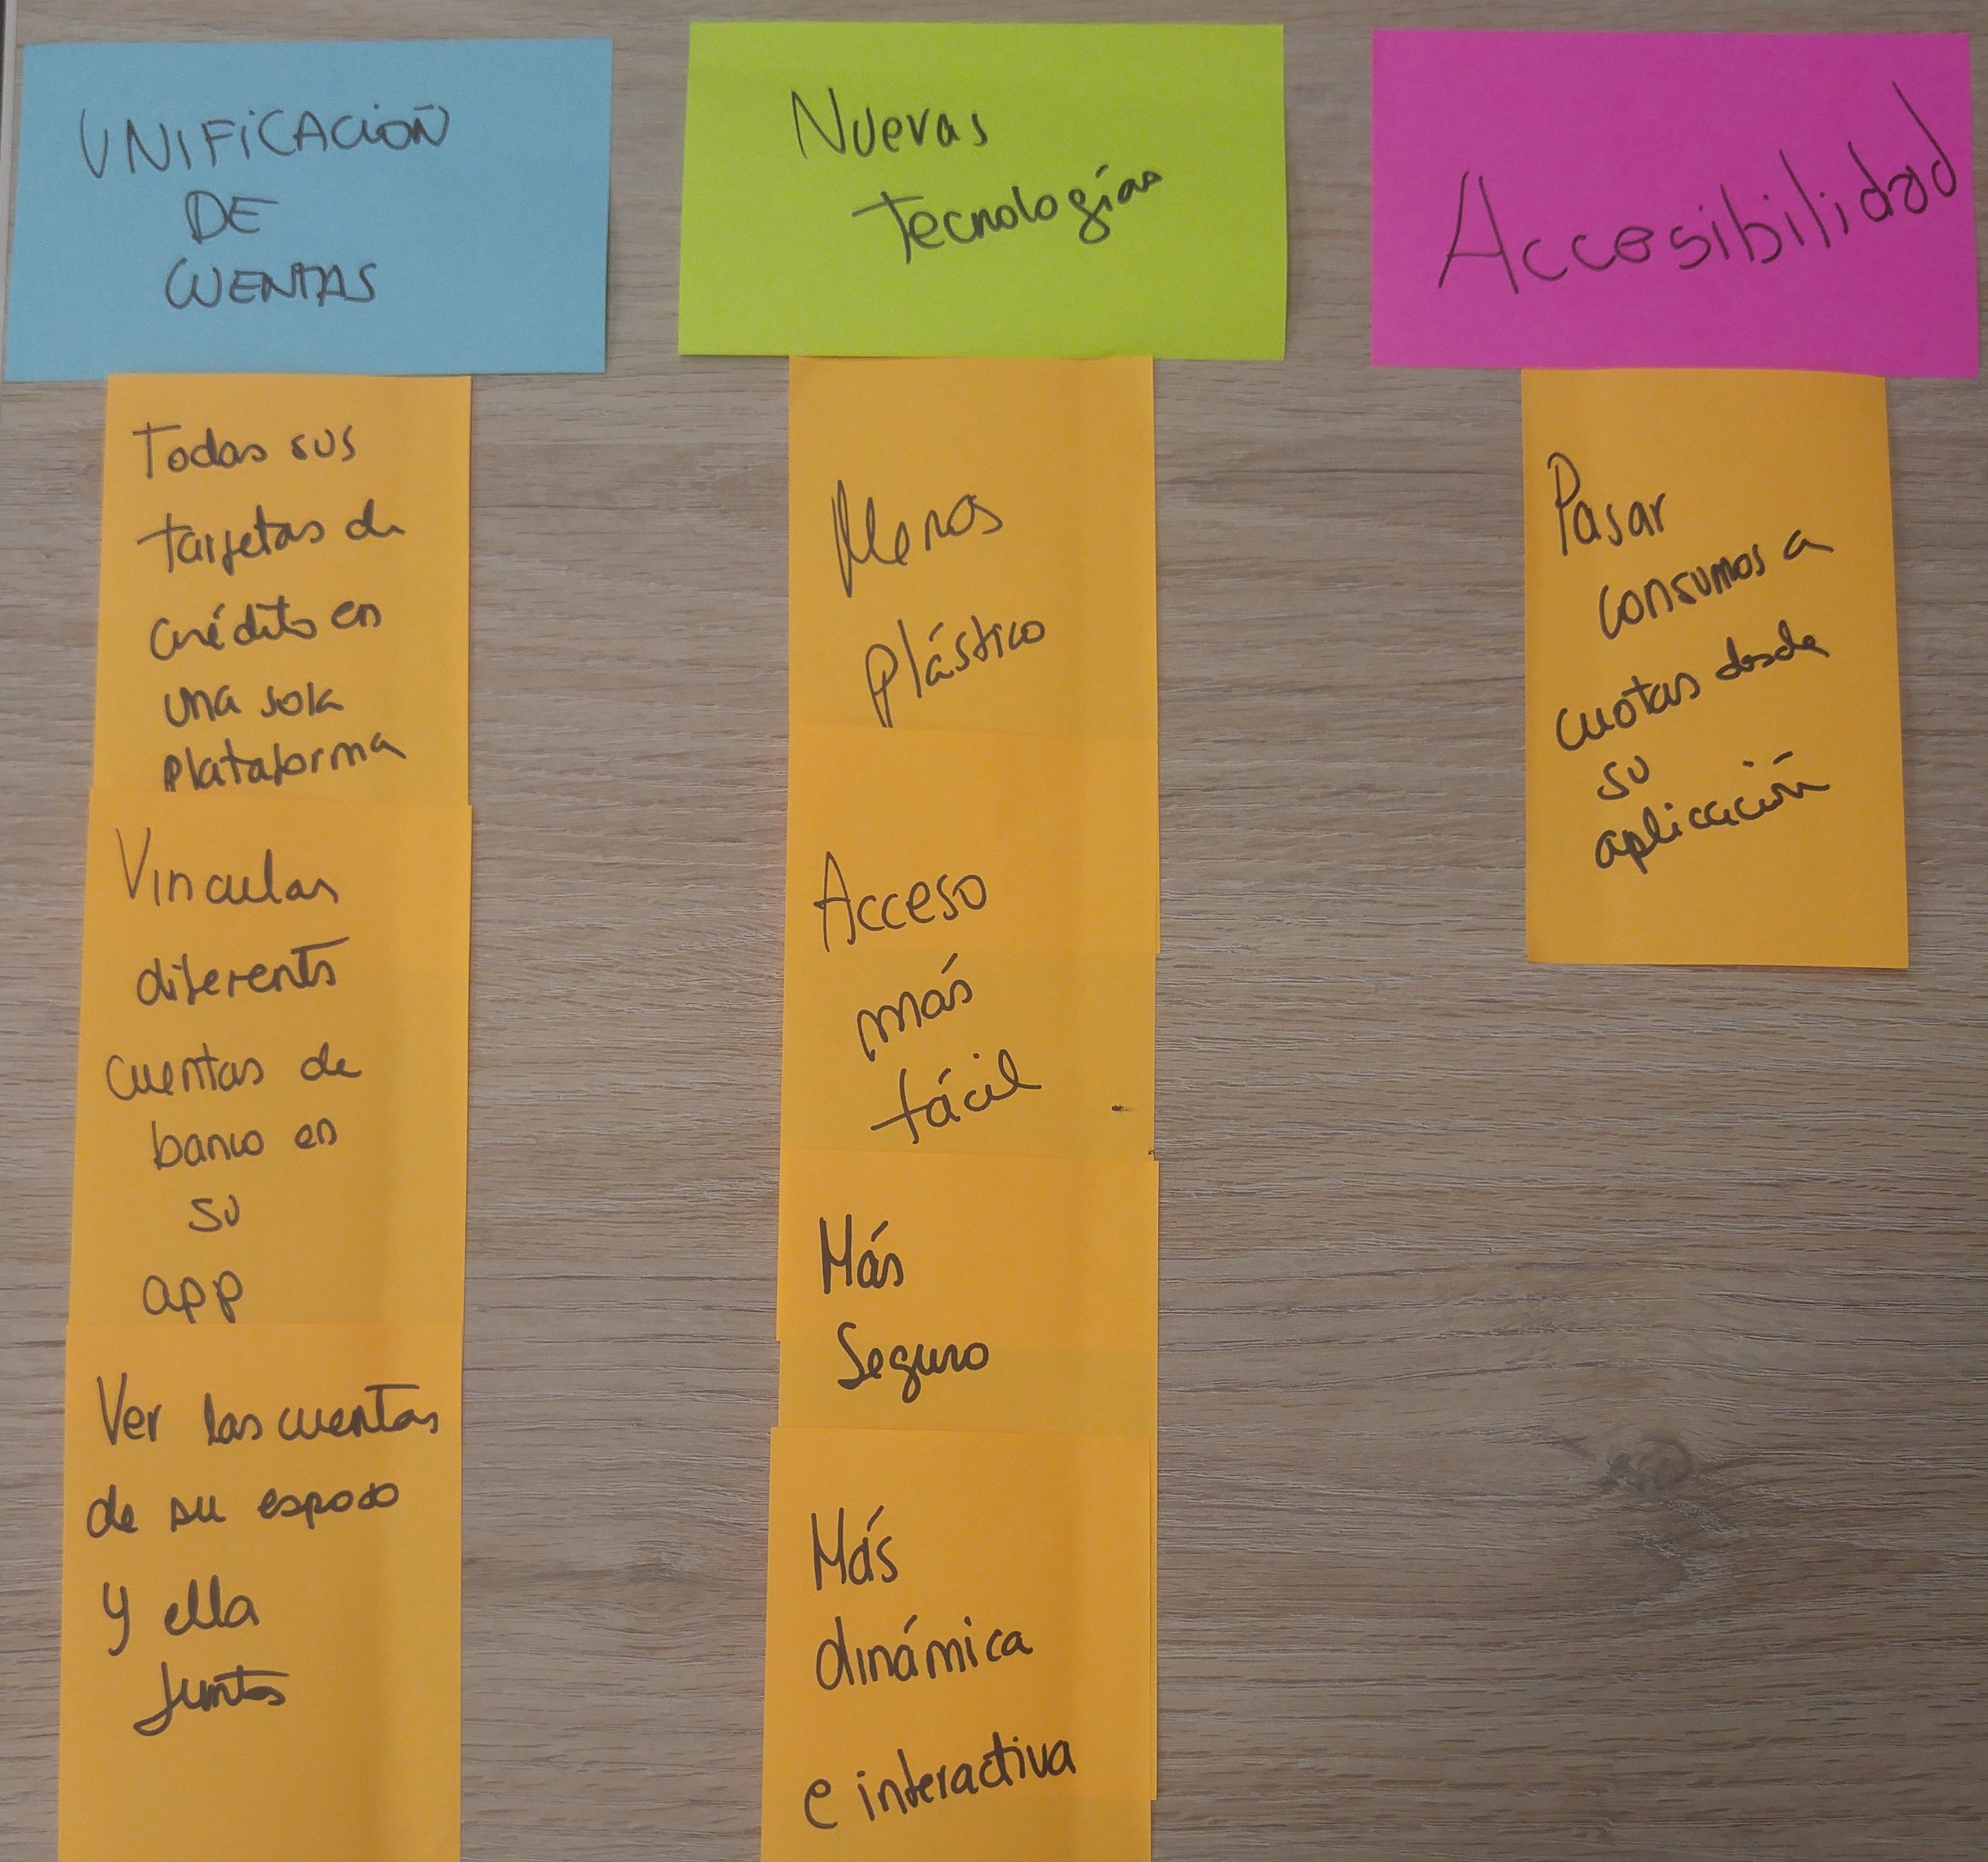 UNIFICACIÓN
DE
CUENTAS
Todas sus
tarjetas de
crédito en
una sola
plataforma
Vincular
diferents
cuentas de
banco en
su
app
Ver las cuentas
de su esposo
y ella
juntos
Nuevas
tecnologías
Menos
plástico
Acceso
más
fácil
Más
Seguro
Más
dinámica
e interactiva
Accesibilidad
Pasar
consumos a
cuotas desde
su
aplicación